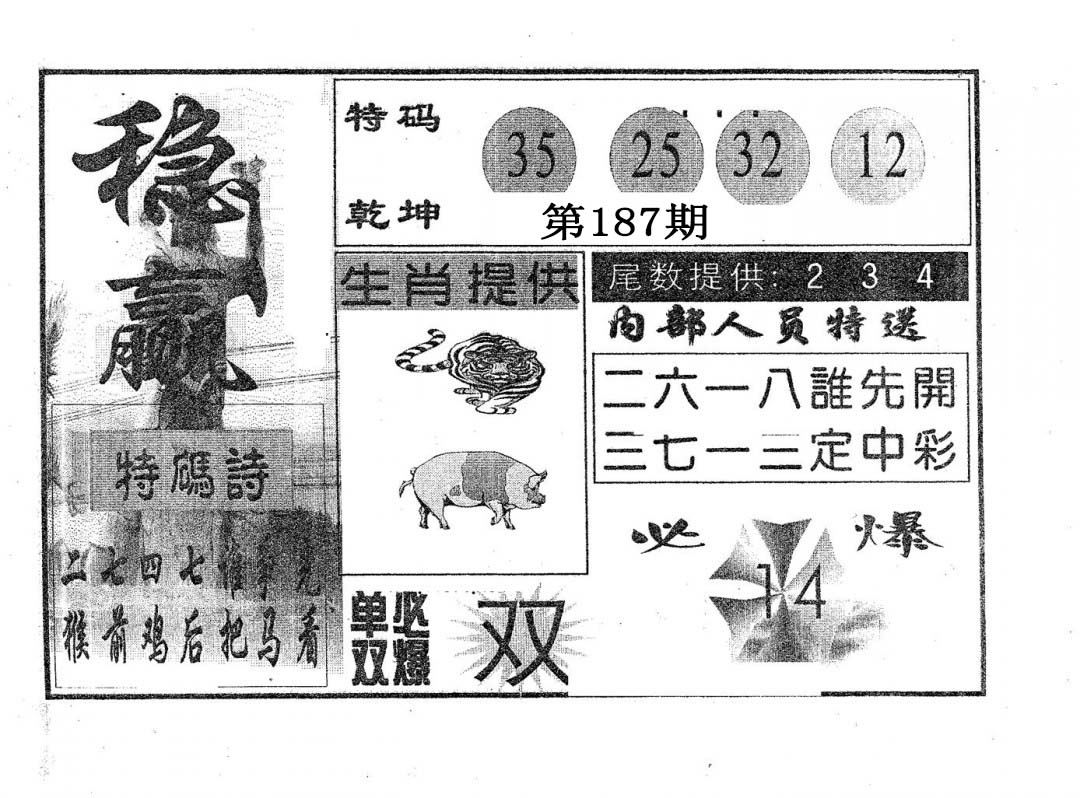 稳赢
特码
35 25 32 12
乾坤
第187期
生肖提供
尾数提供: 2 3 4
内部人员特送
二六一八誰先開
三七一三定中彩
特碼詩
二七四七惟争先
猴前鸡后把马看
必爆
14
单双必爆
双